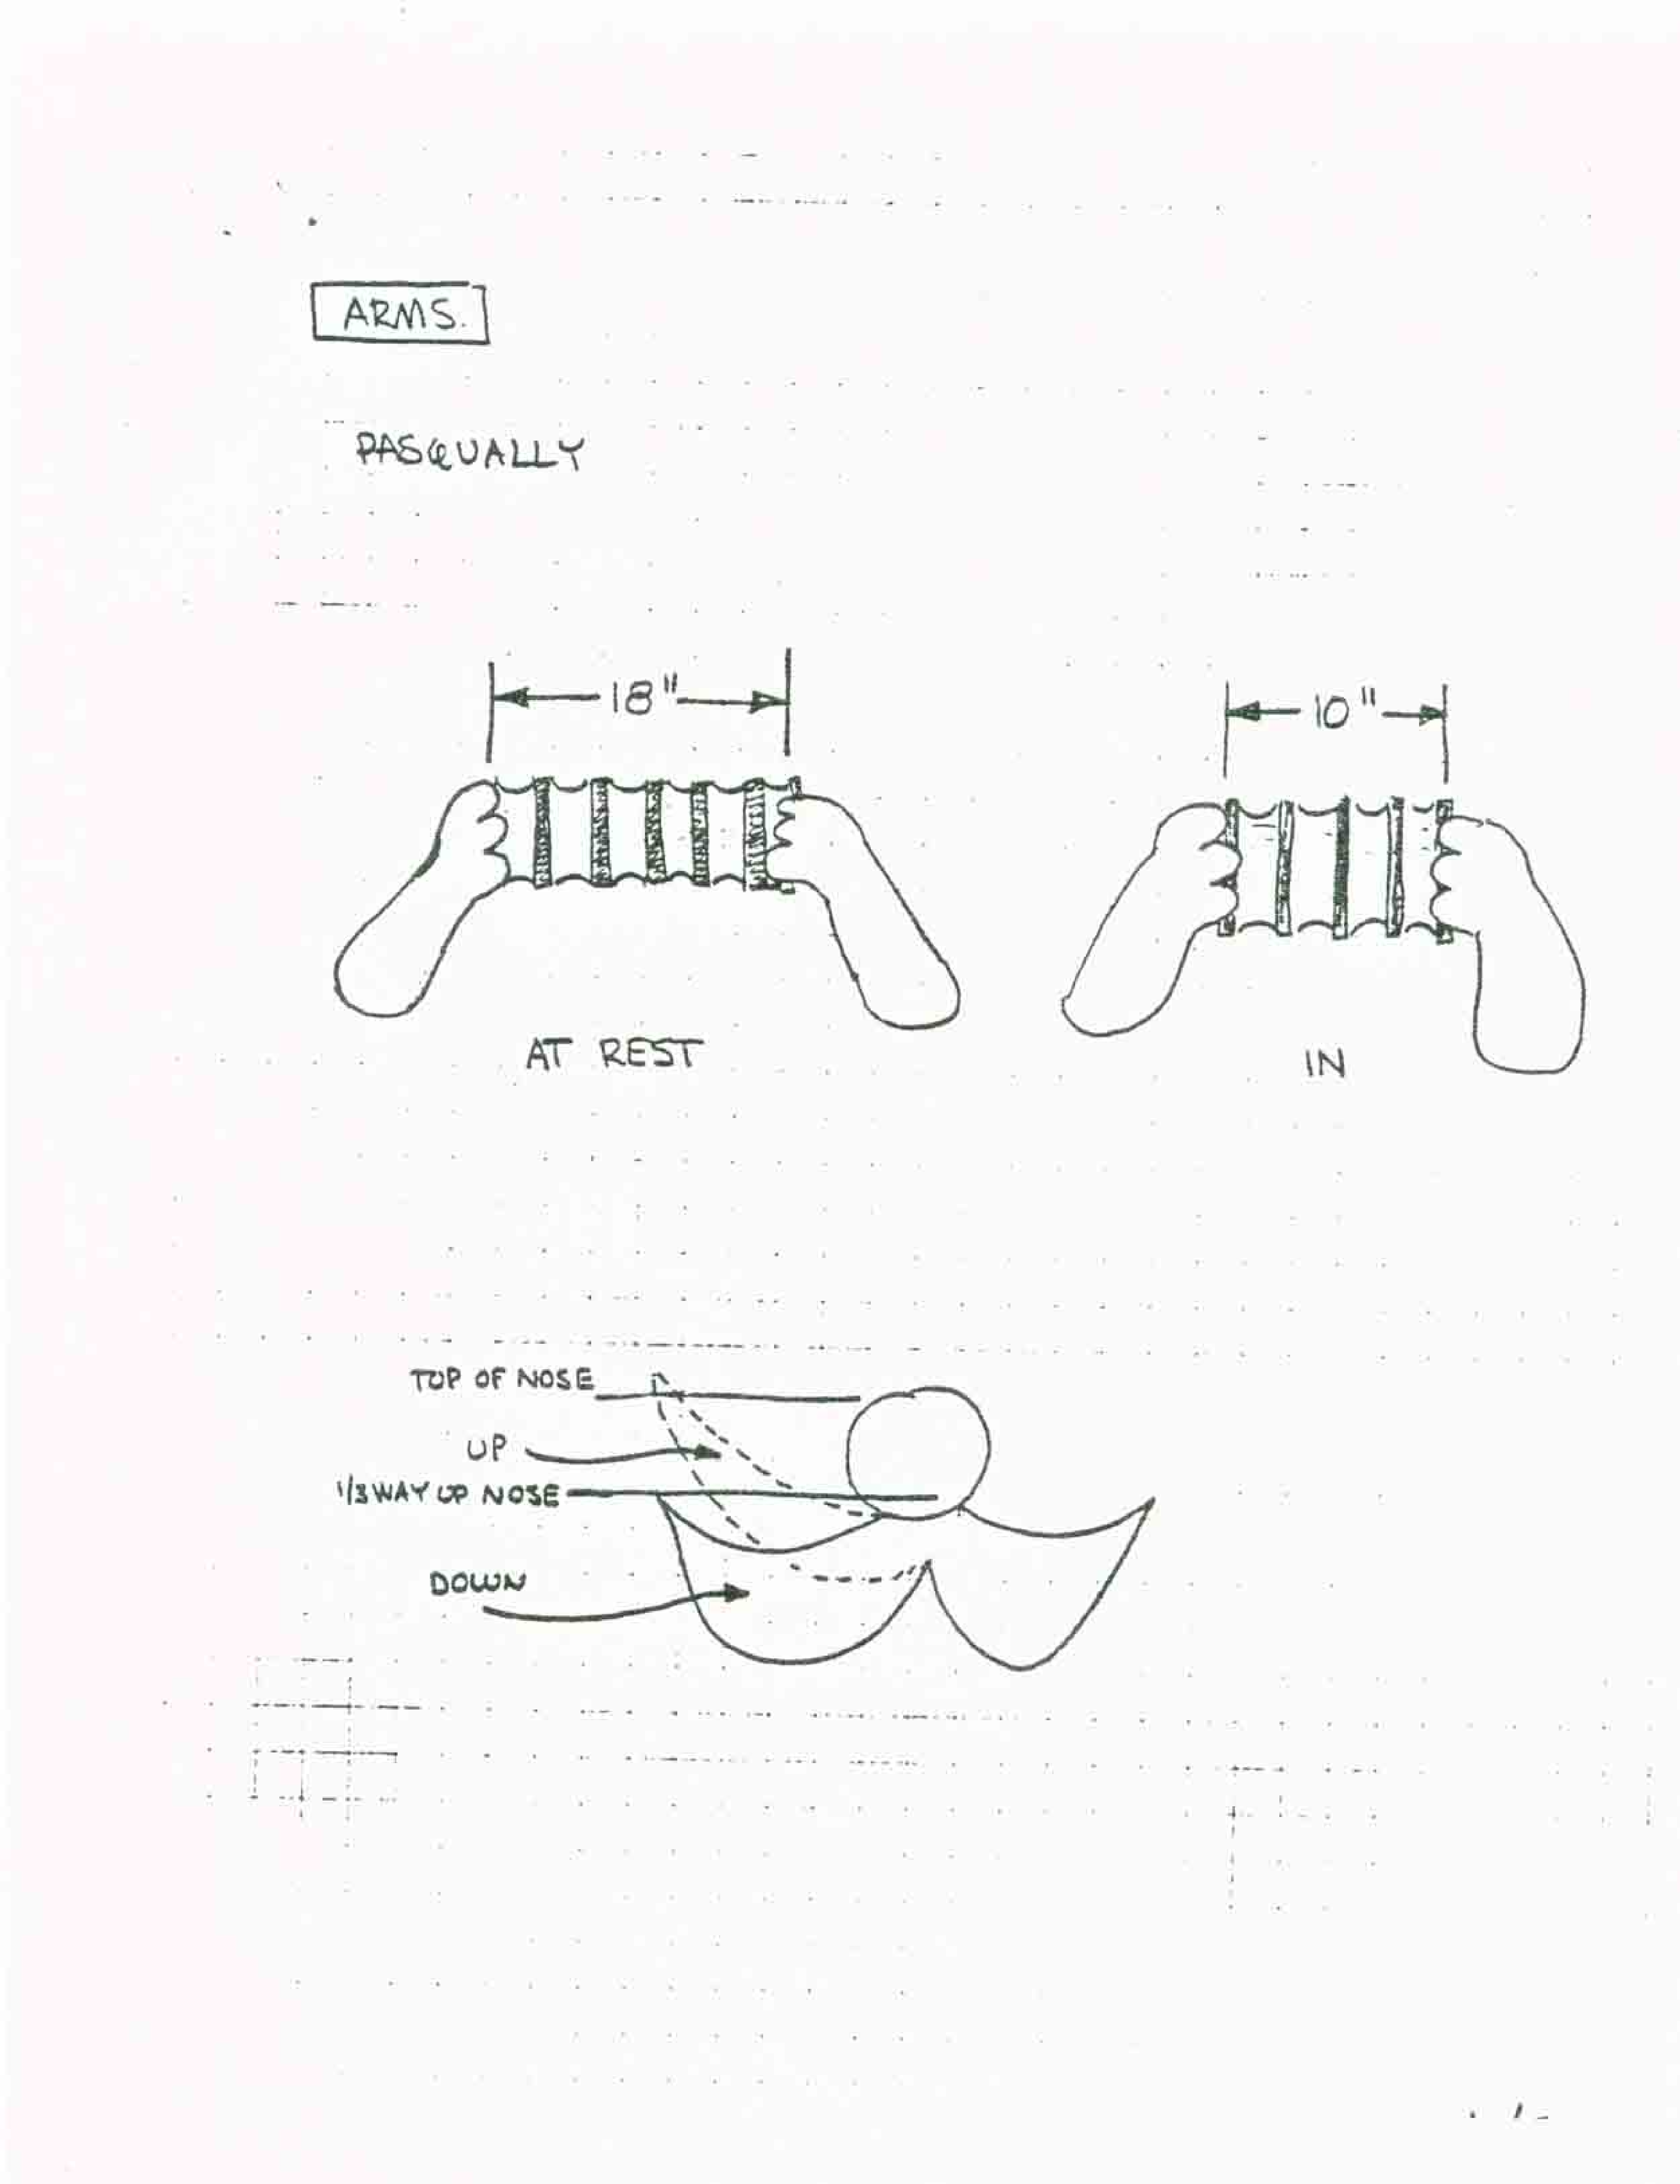 ARMS.
PASQUALLY
18"
10"
AT REST
IN
TOP OF NOSE
UP
1/3 WAY UP NOSE
DOWN